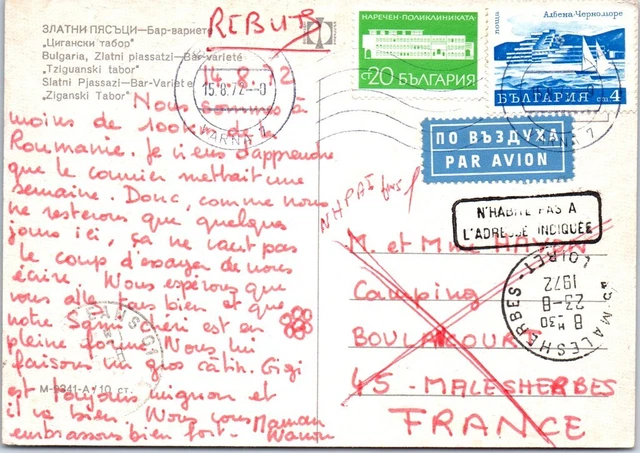 REBUT
ЗЛАТНИ ПЯСЪЦИ—Бар-вариете
„Цигански табор"
Bulgaria, Zlatni piassatzi—Bar-variété
„Tziguanski tabor"
Slatni Pjassazi—Bar-Variete
„Ziganski Tabor"
14.8.72
15.8.72
VARNA 1
Nous sommes à
moins de 100 km de la
Roumanie. Je viens d'apprendre
que le courrier mettrait une
semaine. Donc, comme nous
ne resterons que quelques
jours ici, ça ne vaut pas
le coup d'essayer de nous
écrire. Nous espérons que
vous allez tous bien et que
notre Sami chéri est en
pleine forme. Nous lui
faisons un gros câlin. Gigi
est toujours mignon et
il va bien. Nous vous
embrassons bien fort. Maman
М-9341-А/10 ст.
НАРЕЧЕН·ПОЛИКЛИНИКАТА
ст 20 БЪЛГАРИЯ
поща
Албена-Черноморе
БЪЛГАРИЯ ст 4
ПО ВЪЗДУХА
PAR AVION
NHPAI
N'HABITE PAS A
L'ADRESSE INDIQUÉE
M. et Mme
Camping
BOULANCOURT
45 - MALESHERBES
FRANCE
45 MALESHERBES
LOIRET
8 H30
23-8
1972